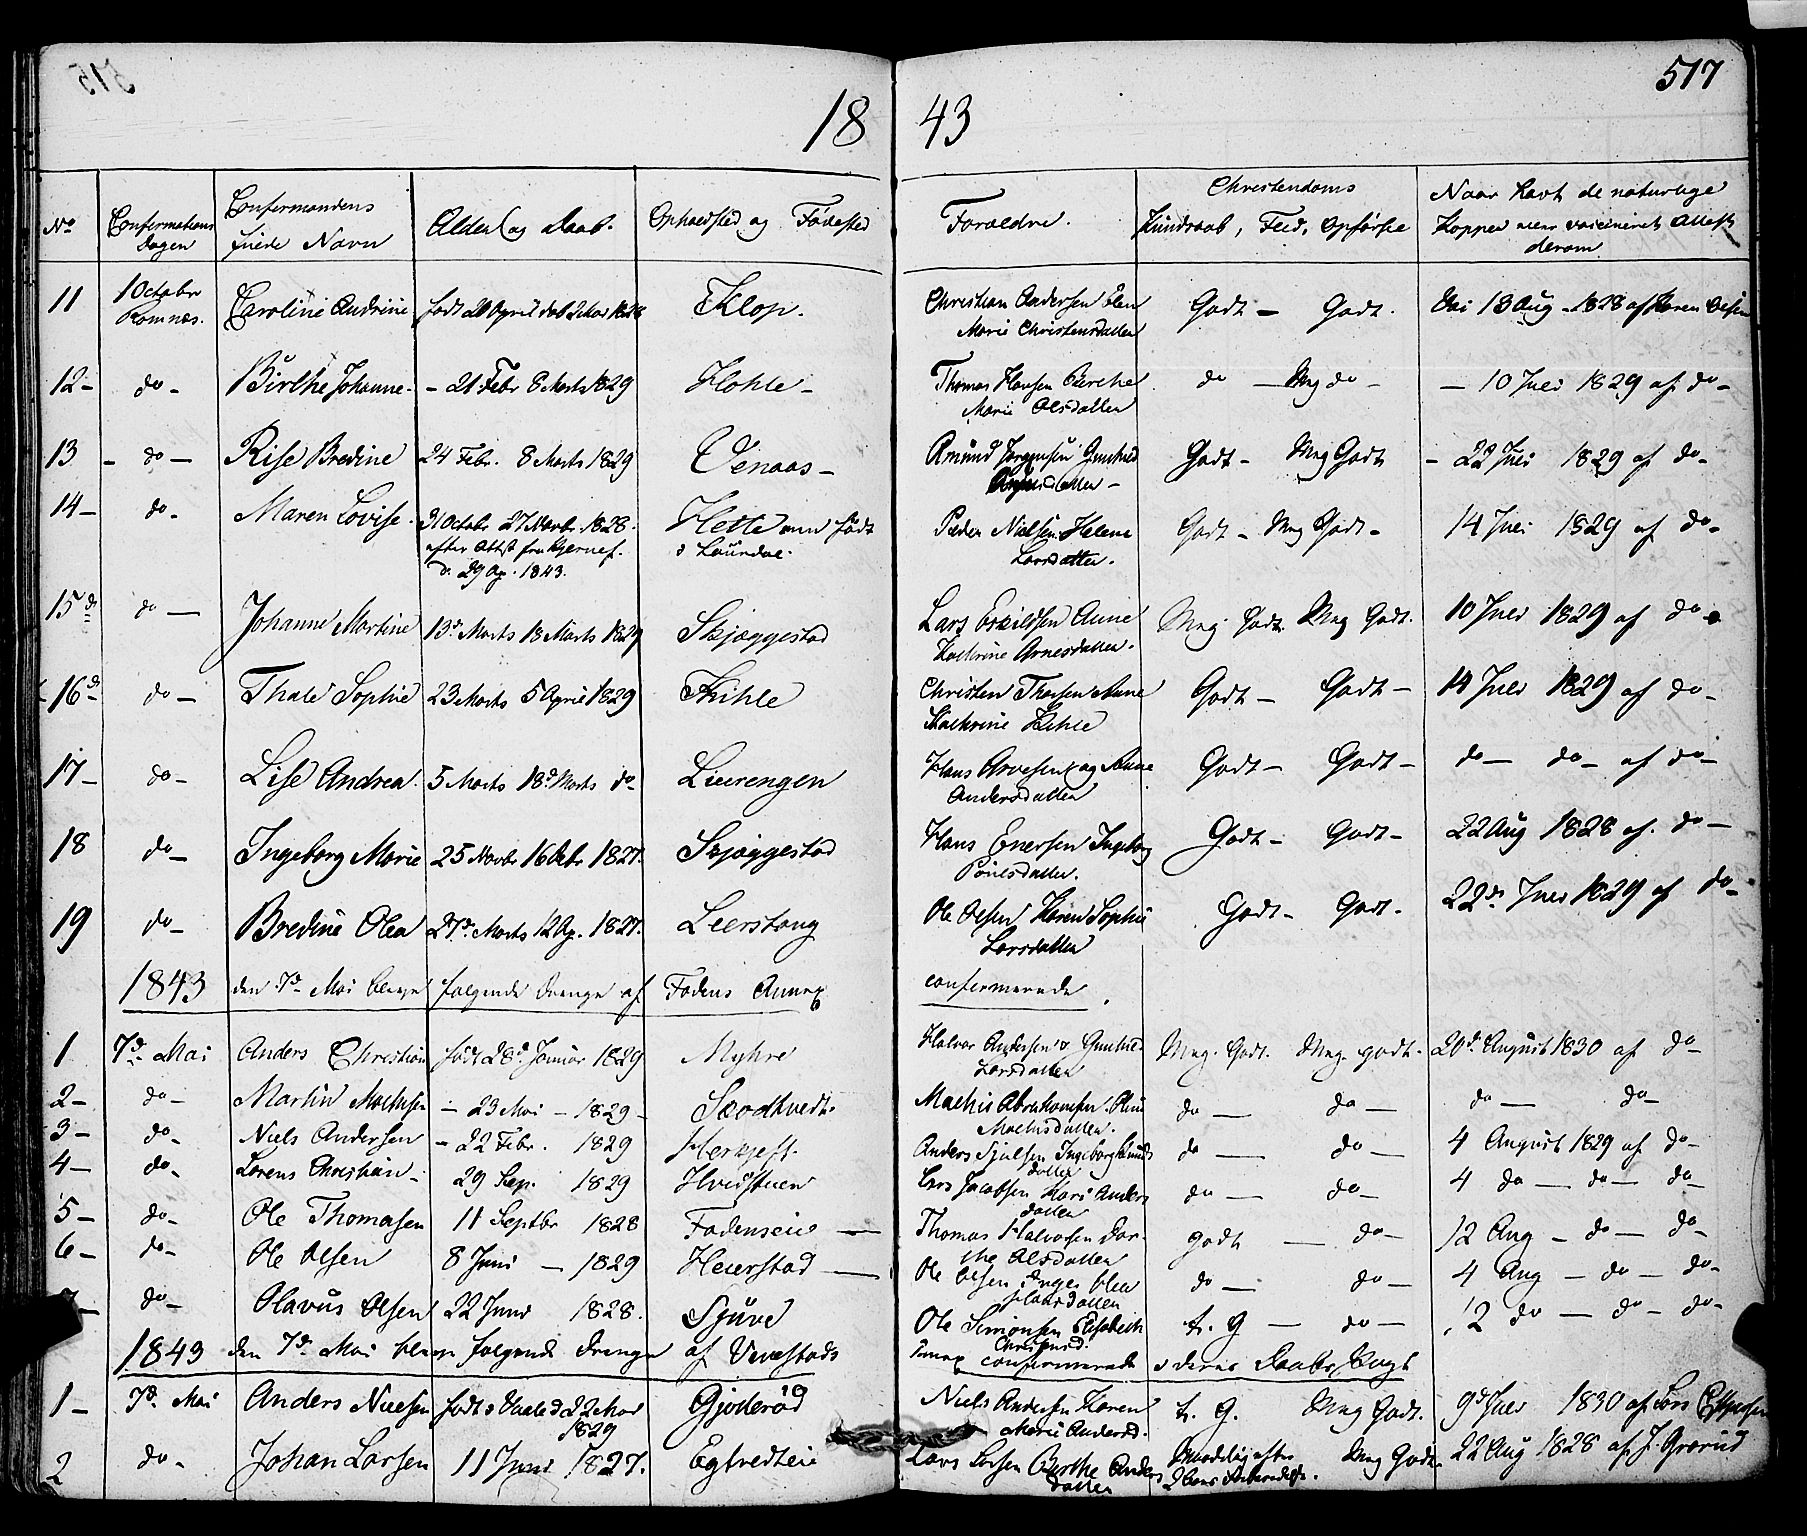 517
18 43
No Confirmations Dagen Confirmandens fulde Navn Alder og Daab. Opholdsted og Fødested Forældre. Christendoms Kundskab, Flid, Opførsel Naar havt de naturlige Kopper eller vaccineret Attest derom
11 1 Octobr Romnæs. Caroline Andrine født 20 April døbt 2 Mai 1828 Klop. Christian Andersen Elen Marie Christensdatter Godt - Godt. 13 Aug - 1828 af Karen Olsen
12 - do - Birthe Johanne - 21 Febr 8 Marts 1829 Hohle - Thomas Hansen Marie Olsdatter do - Mg do - - 10 Juli 1829 af do -
13 - do - Rise Bredine 24 Febr. 8 Marts 1829 Venaas - Amund Jørgensen Gunhild Godt - Meg Godt - 22 Juli 1829 af do -
14 - do - Maren Lovise. 31 Octobr 27 Novbr. 1828. efter Attst fra Hjernef. d. 29 Ap. 1843. Hette men født i Laurdal. Peder Nielsen Helene Larsdatter. Godt - Meg Godt - 14 Juli 1829 af do -
15 do - Johanne Martine 13d Marts 18 Marts 1829 Skjæggestad Lars Eskildsen Anne Kathrine Arnesdatter. Meg Godt. Meg Godt. 10 Juli 1829 af do
16 do - Thale Sophie 23 Marts 5 April 1829 Kihle Christen Thorsen Anne Kathrine Kihle Godt - Godt - 14 Juli 1829 af do -
17 - do - Lise Andrea. 5 Marts 18d Marts do - Lierengen Hans Arvesen og Anne Andersdatter Godt - Godt - do - do - af do -
18 do - Ingeborg Marie 25 Novbr 16 Debr 1827. Skjæggestad Hans Enersen Ingeborg Povelsdatter. Godt - Godt - 22 Aug 1828 af. do -
19 do - Bredine Olea 27d Marts 12 Ap. 1827. Leerstang Ole Olsen Karen Sophie Larsdatter Godt - Godt - 22d Juli 1829 af do -
1843 den 7d Mai bleve følgende Drenge af Fodens Annex confirmerede
1 7d Mai Anders Christian født 28d Januar 1829 Myhre Halvor Andersen Gunhild Larsdatter Meg. Godt. Meg. godt. 20d August 1830 af do -
2 - do - Martin Mathisen - 23 Mai - 1829 - Mathis Abrahamsen Mathisdatter. do - do - do - do -
3 - do - Niels Andersen - 22 Febr. 1829 Anders Ingeborg datter do - do - 4 August 1829 af do -
4 - do - Lorens Christian - 29 Sep. 1829 Hvidstuen Lars Jacobsen Kari Anders datter do - do - 4 do - do - do -
5 - do - Ole Thomasen 11 Septbr 1828 Fodenseie - Thomas Halvorsen Dorthe Olsdatter godt - do - 12 Aug - do - do -
6 - do - Ole Olsen 8 Juni - 1829 Heierstad - Ole Olsen Inger Olea do - do - 4 Aug - do - do -
7 - do - Olavus Olsen 22 Juni 1828. Sjuve Ole Simonsen Elisabeth t. G - do - 12 do - do - do -
1843 den 7d Mai bleve følgende Drenge af Vevestads Annex confirmerede i deres Daabs Pagt
1 - 7d Mai Anders Nielsen født 22 Mai 1829 Gjøderød Niels Andersen Karen Marie Andersd. t. G. Meg Godt. 9d Juli 1830 af Lars
2 do - Johan Larsen 11 Juni 1827. Egtvedteie Lars Larsen Birthe Anders datter Maadelig efter Meg Godt. 22 Aug 1828 af J. Grorud